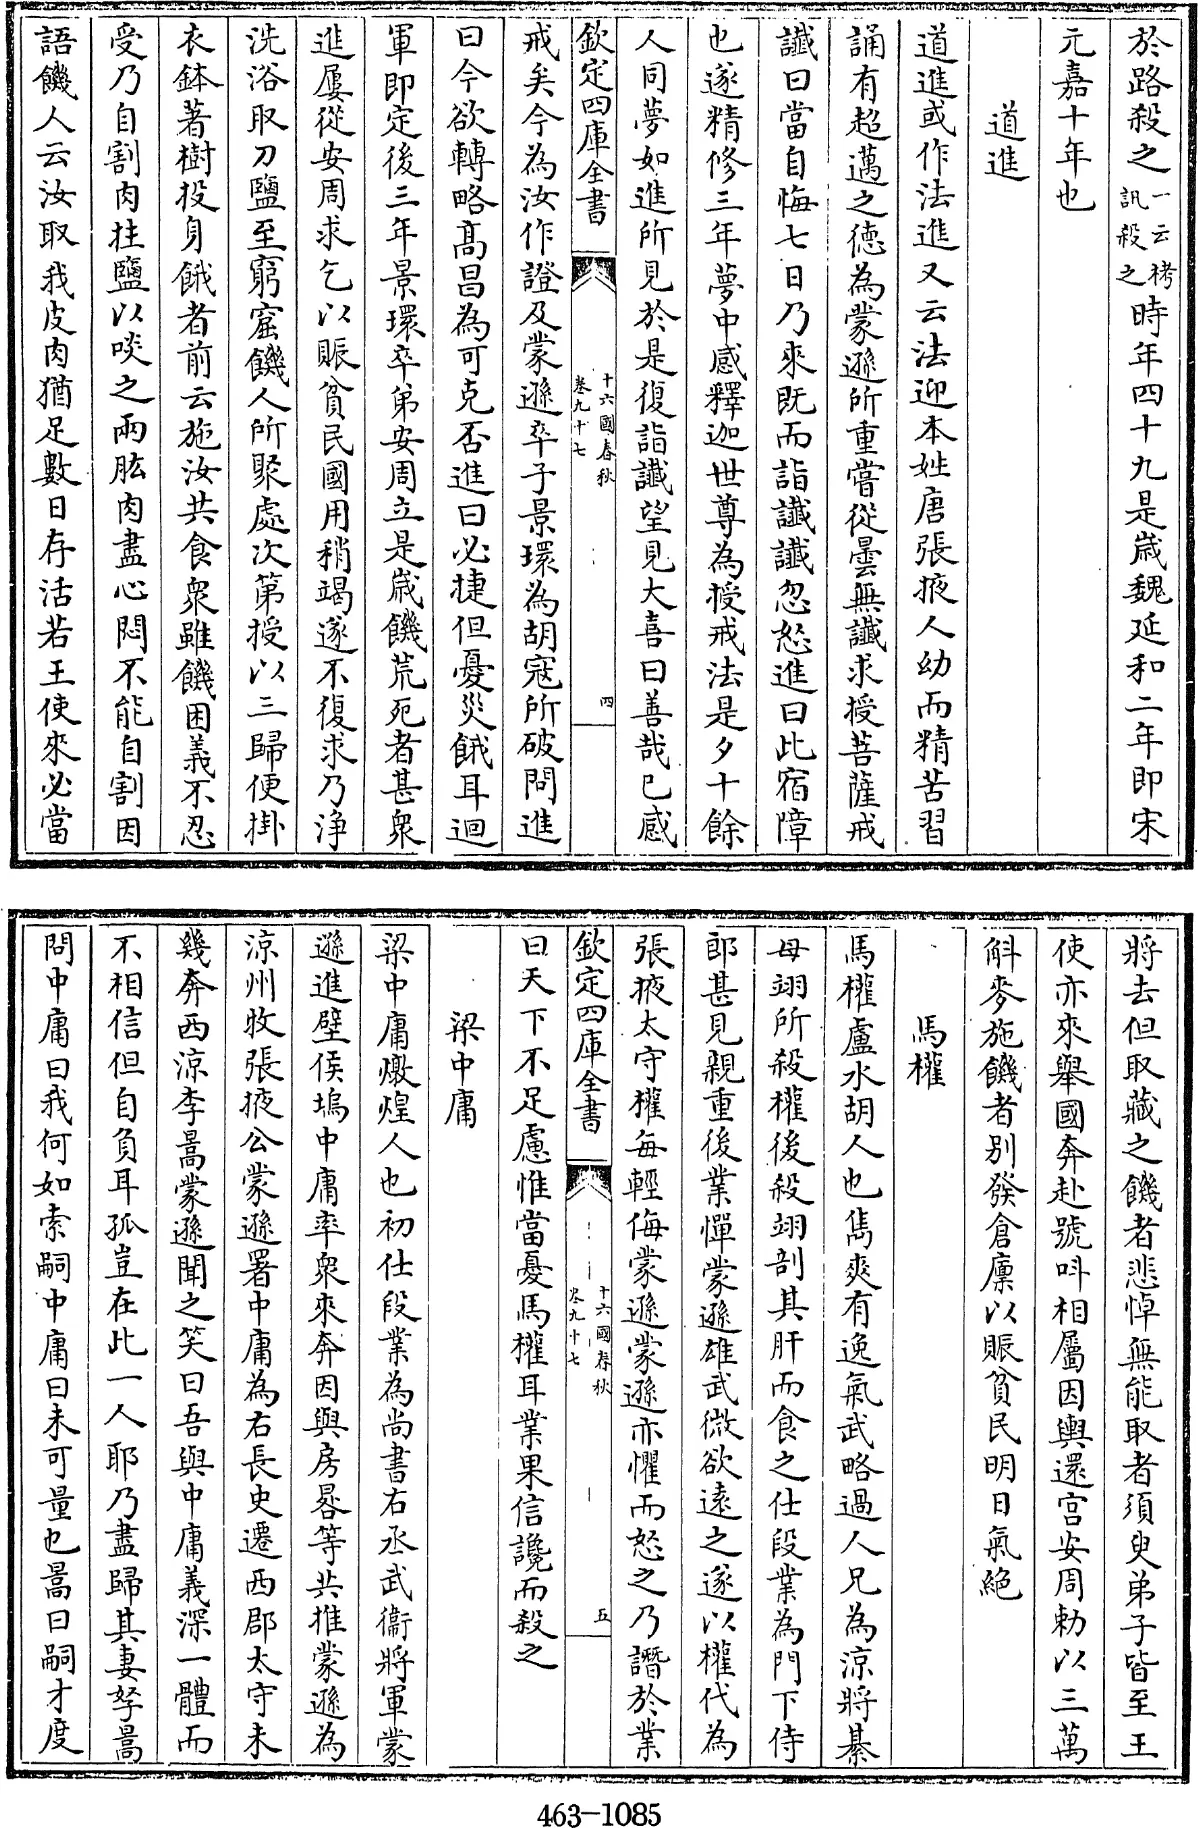 於路殺之一云栲訊殺之時年四十九是嵗魏延和二年即宋
元嘉十年也
道進
道進或作法進又云法迎本姓唐張掖人幼而精苦習
誦有超邁之德為蒙遜所重嘗從曇無讖求授菩薩戒
讖曰當自悔七日乃來既而詣讖讖忽怒進曰此宿障
也遂精修三年夢中感釋迦世尊為授戒法是夕十餘
人同夢如進所見於是復詣讖望見大喜曰善哉已感
欽定四庫全書
十六國春秋
卷九十七
四
戒矣今為汝作證及蒙遜卒子景環為胡寇所破問進
曰今欲轉略髙昌為可克否進曰必捷但憂災餓耳迴
軍即定後三年景環卒弟安周立是嵗饑荒死者甚衆
進屢從安周求乞以賑貧民國用稍竭遂不復求乃淨
洗浴取刀鹽至窮窟饑人所聚處次第授以三歸便掛
衣鉢著樹投身餓者前云施汝共食衆雖饑困義不忍
受乃自割肉拄鹽以啖之兩肱肉盡心悶不能自割因
語饑人云汝取我皮肉猶足數日存活若王使來必當
將去但取藏之饑者悲悼無能取者須臾弟子皆至王
使亦來舉國奔赴號呌相屬因輿還宮安周勅以三萬
斛麥施饑者别發倉廩以賑貧民明日氣絶
馬權
馬權盧水胡人也雋爽有逸氣武略過人兄為涼將綦
母翊所殺權後殺翊剖其肝而食之仕段業為門下侍
郎甚見親重後業憚蒙遜雄武微欲遠之遂以權代為
張掖太守權每輕侮蒙遜蒙遜亦懼而怒之乃譖於業
欽定四庫全書
十六國春秋
卷九十七
五
曰天下不足慮惟當憂馬權耳業果信讒而殺之
梁中庸
梁中庸燉煌人也初仕段業為尚書右丞武衞將軍蒙
遜進壁侯塢中庸率衆來奔因與房晷等共推蒙遜為
涼州牧張掖公蒙遜署中庸為右長史遷西郡太守未
幾奔西涼李暠蒙遜聞之笑曰吾與中庸義深一體而
不相信但自負耳孤豈在此一人耶乃盡歸其妻孥暠
問中庸曰我何如索嗣中庸曰未可量也暠曰嗣才度
463-1085